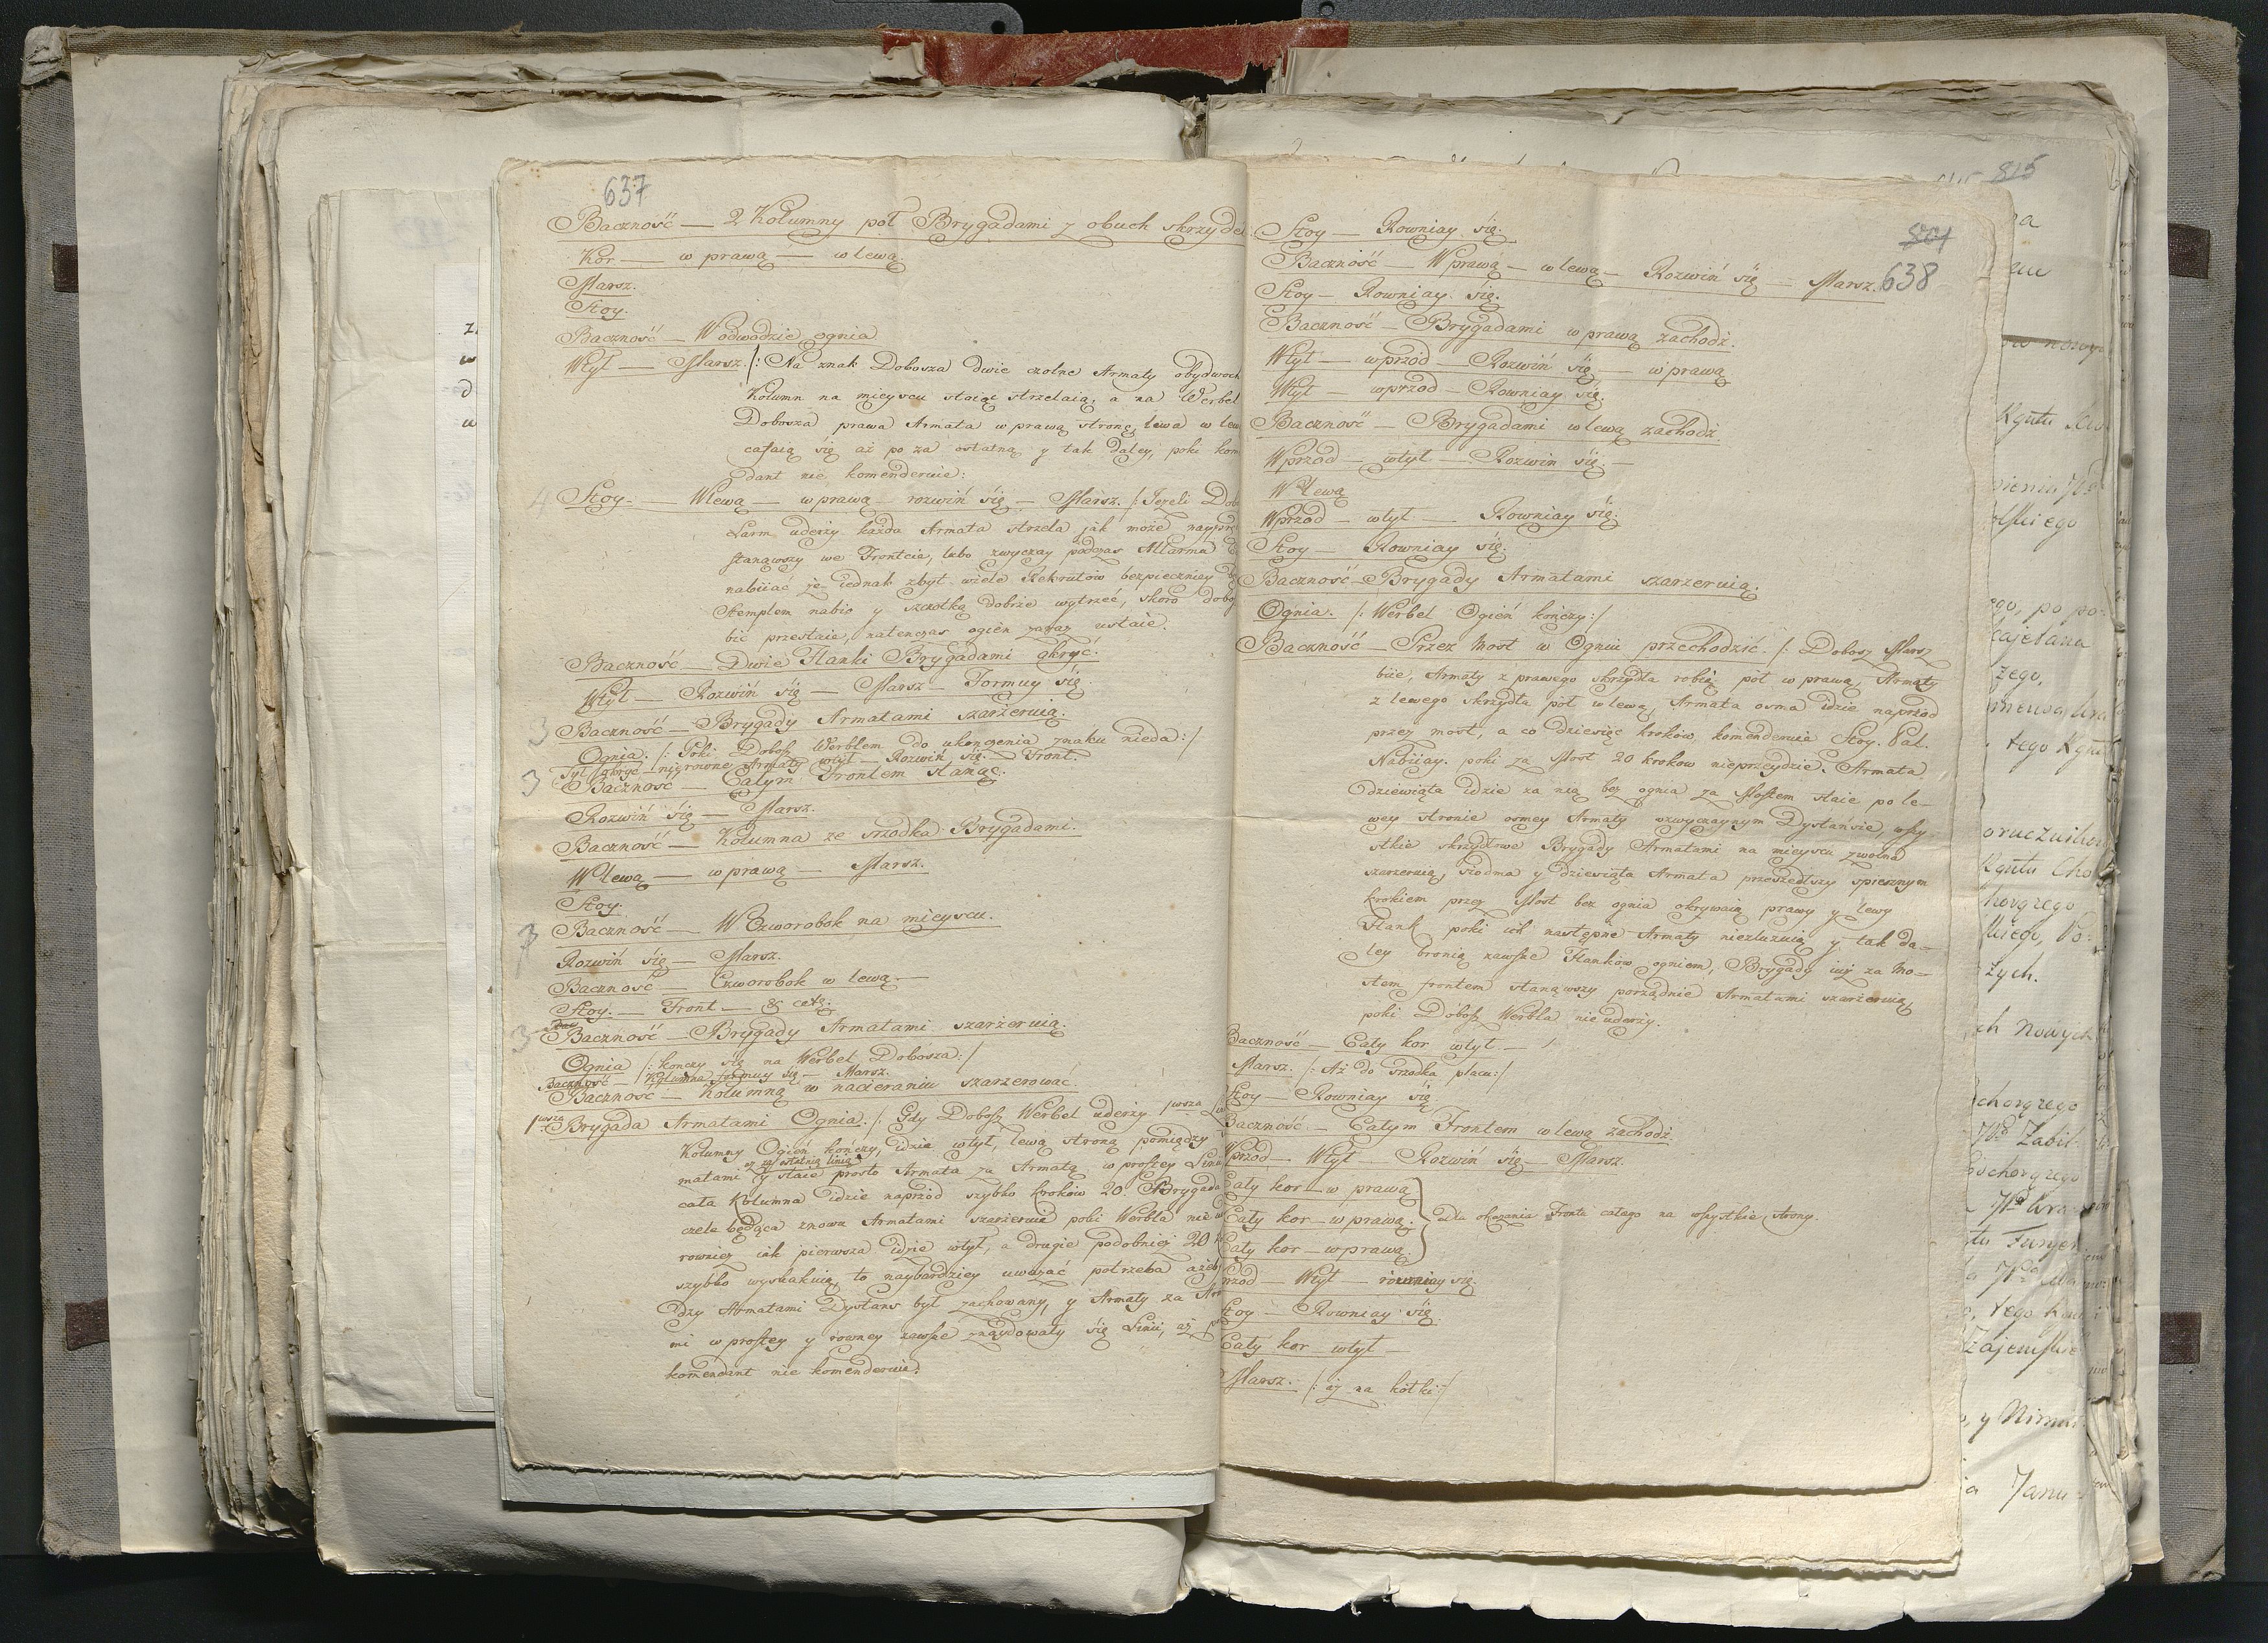 637
Baczność — 2 Kolumny poł Brygadami z obuch skrzydeł
Kor — w prawą — w lewą.
Marsz.
Stoy.
Baczność — W odwodzie ognia
Wtył — Marsz. /: Na znak Dobosza dwie czolne Armaty obydwoch
Kolumn na mieyscu stoiąc strzelaią, a na Werbel
Dobosza prawa Armata w prawą stronę, lewa w lew
cofaią się aż po za ostatną y tak daley, poki kom
dant nie komenderuie:
4 Stoy. — W lewą — w prawą — rozwiń się — Marsz. /: Jeżeli Dob
Larm uderży każda Armata strzela jak może nayprę
stanąwszy we Frontcie, lubo zwyczay podczas Allarma
nabiiać je iednak zbyt wiele Rekrutów bezpieczniey
Stemplem nabić y szczotką dobrze wytrzeć, skoro dobo
bić przestaie, natenczas ogień zaraz ustaie.
Baczność — Dwie Flanki Brygadami okryć.
Wtył — Rozwiń się — Marsz — Formuy się
3 Baczność — Brygady Armatami szarżeruią.
Ognia. /: Poki Dobosz Werblem do ukonczenia znaku nieda: /
Tył okryć — nierowne Armaty wtył — Rozwiń się — Front.
3 Baczność — Całym Frontem stanąć.
Rozwiń się — Marsz.
Baczność — Kolumna ze srzodka Brygadami.
W lewą — w prawą — Marsz.
Stoy.
3 Baczność — W Czworobok na mieyscu.
Rozwiń się — Marsz.
Baczność — Czworobok w lewą —
Stoy. — Front — & cetą.
3 Baczność — Brygady Armatami szarżeruią.
Ognia /: konczy się na Werbel Dobosza: /
Baczność — Kolumna formuy się — Marsz.
Baczność — Kolumną w nacieraniu szarżerować.
1wsza Brygada Armatami Ognia. /: Gdy Dobosz Werbel uderży 1wsza
Kolumny Ogień kończy, idzie wtył, lewą stroną pomiędzy
aż za ostatnią linią
matami y staie prosto Armata za Armatą w prostey Linii
cała Kolumna idzie naprzód szybko kroków 20. Brygada
czele będąca znowu Armatami szarżeruie poki Werbla nie
rownież iak pierwsza idzie wtył, a drugie podobnież 20
szybko wyskakuią, to naybardziey uważać potrzeba ażeb
dzy Armatami Dystans był zachowany, y Armaty za Arm
mi w prostey y rowney zawsze znaydowały się Linii, aż
komendant nie komenderuie:
815
801
638
Stoy — Rowniay się.
Baczność — W prawą — w lewą — Rozwiń się — Marsz.
Stoy — Rowniay się.
Baczność — Brygadami w prawą zachodź.
Wtył — wprzód — Rozwiń się — w prawą
Wtył — wprzod — Rowniay się.
Baczność — Brygadami w lewą zachodź
Wprzod — wtył — Rozwin się. —
W lewą
Wprzod — wtył — Rowniay się.
Stoy — Rowniay się.
Baczność — Brygady Armatami szarżeruią.
Ognia. /: Werbel Ogień kończy: /
Baczność — Przez Most w Ogniu przechodzić. /: Dobosz Marsz
biie, Armaty z prawego skrzydła robią poł w prawą, Armaty
z lewego skrzydła poł w lewą, Armata osma idzie naprzód
przez most, a co dziesięć kroków komenderuie Stoy. Pal.
Nabiiay. poki za Most 20 krokow nieprzeydzie. Armata
dziewiąta idzie za nią bez ognia za Mostem staie po le—
wey stronie osmey Armaty wzwyczaynym Dystansie, wszy
stkie skrzydłowe Brygady Armatami na mieyscu zwolna
szarżeruią, siodma y dziesiąta Armata przeszedłszy spiesznym
krokiem przez Most bez ognia okrywaią prawy y lewy
Flank poki ich następne Armaty niezluzuią y tak da—
ley bronią zawsze Flanków ogniem, Brygady iuż za Mo—
stem frontem stanąwszy porządnie Armatami szarżeruią,
poki Dobosz Werbla nie uderży.
Baczność — Cały kor wtył —
Marsz. /: Aż do srzodka placu: /
Stoy — Rowniay się
Baczność — Całym Frontem w lewą zachodź.
Wprzod — Wtył — Rozwiń się — Marsz.
Cały kor — w prawą
Cały kor — w prawą. } dla okazania Frontu całego na wszystkie strony.
Cały kor — w prawą
przod — Wtył — rowniay się.
Stoy — Rowniay się.
Cały kor — wtył —
Marsz. /: aż na kołki: /